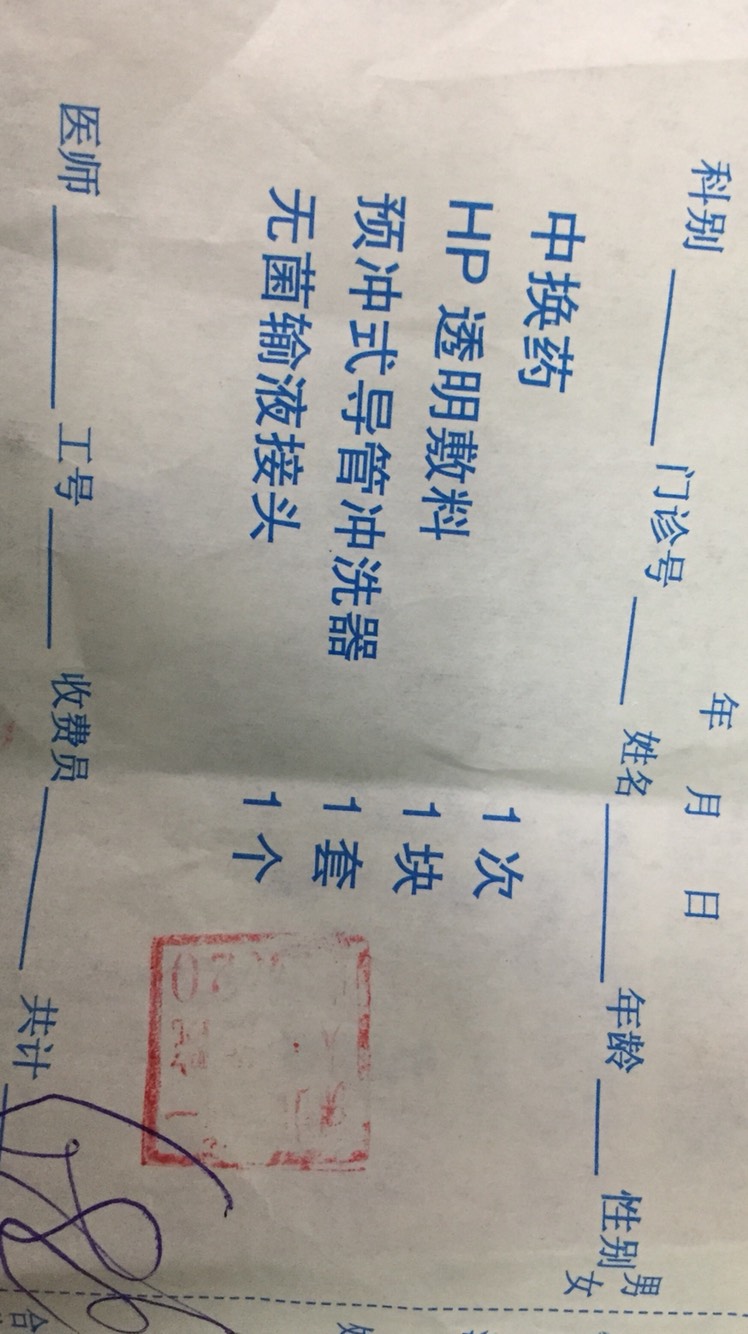 年 月 日
科别 门诊号 姓名 年龄 性别 男 女
中换药 1 次
HP 透明敷料 1 块
预冲式导管冲洗器 1 套
无菌输液接头 1 个
医师 工号 收费员 共计